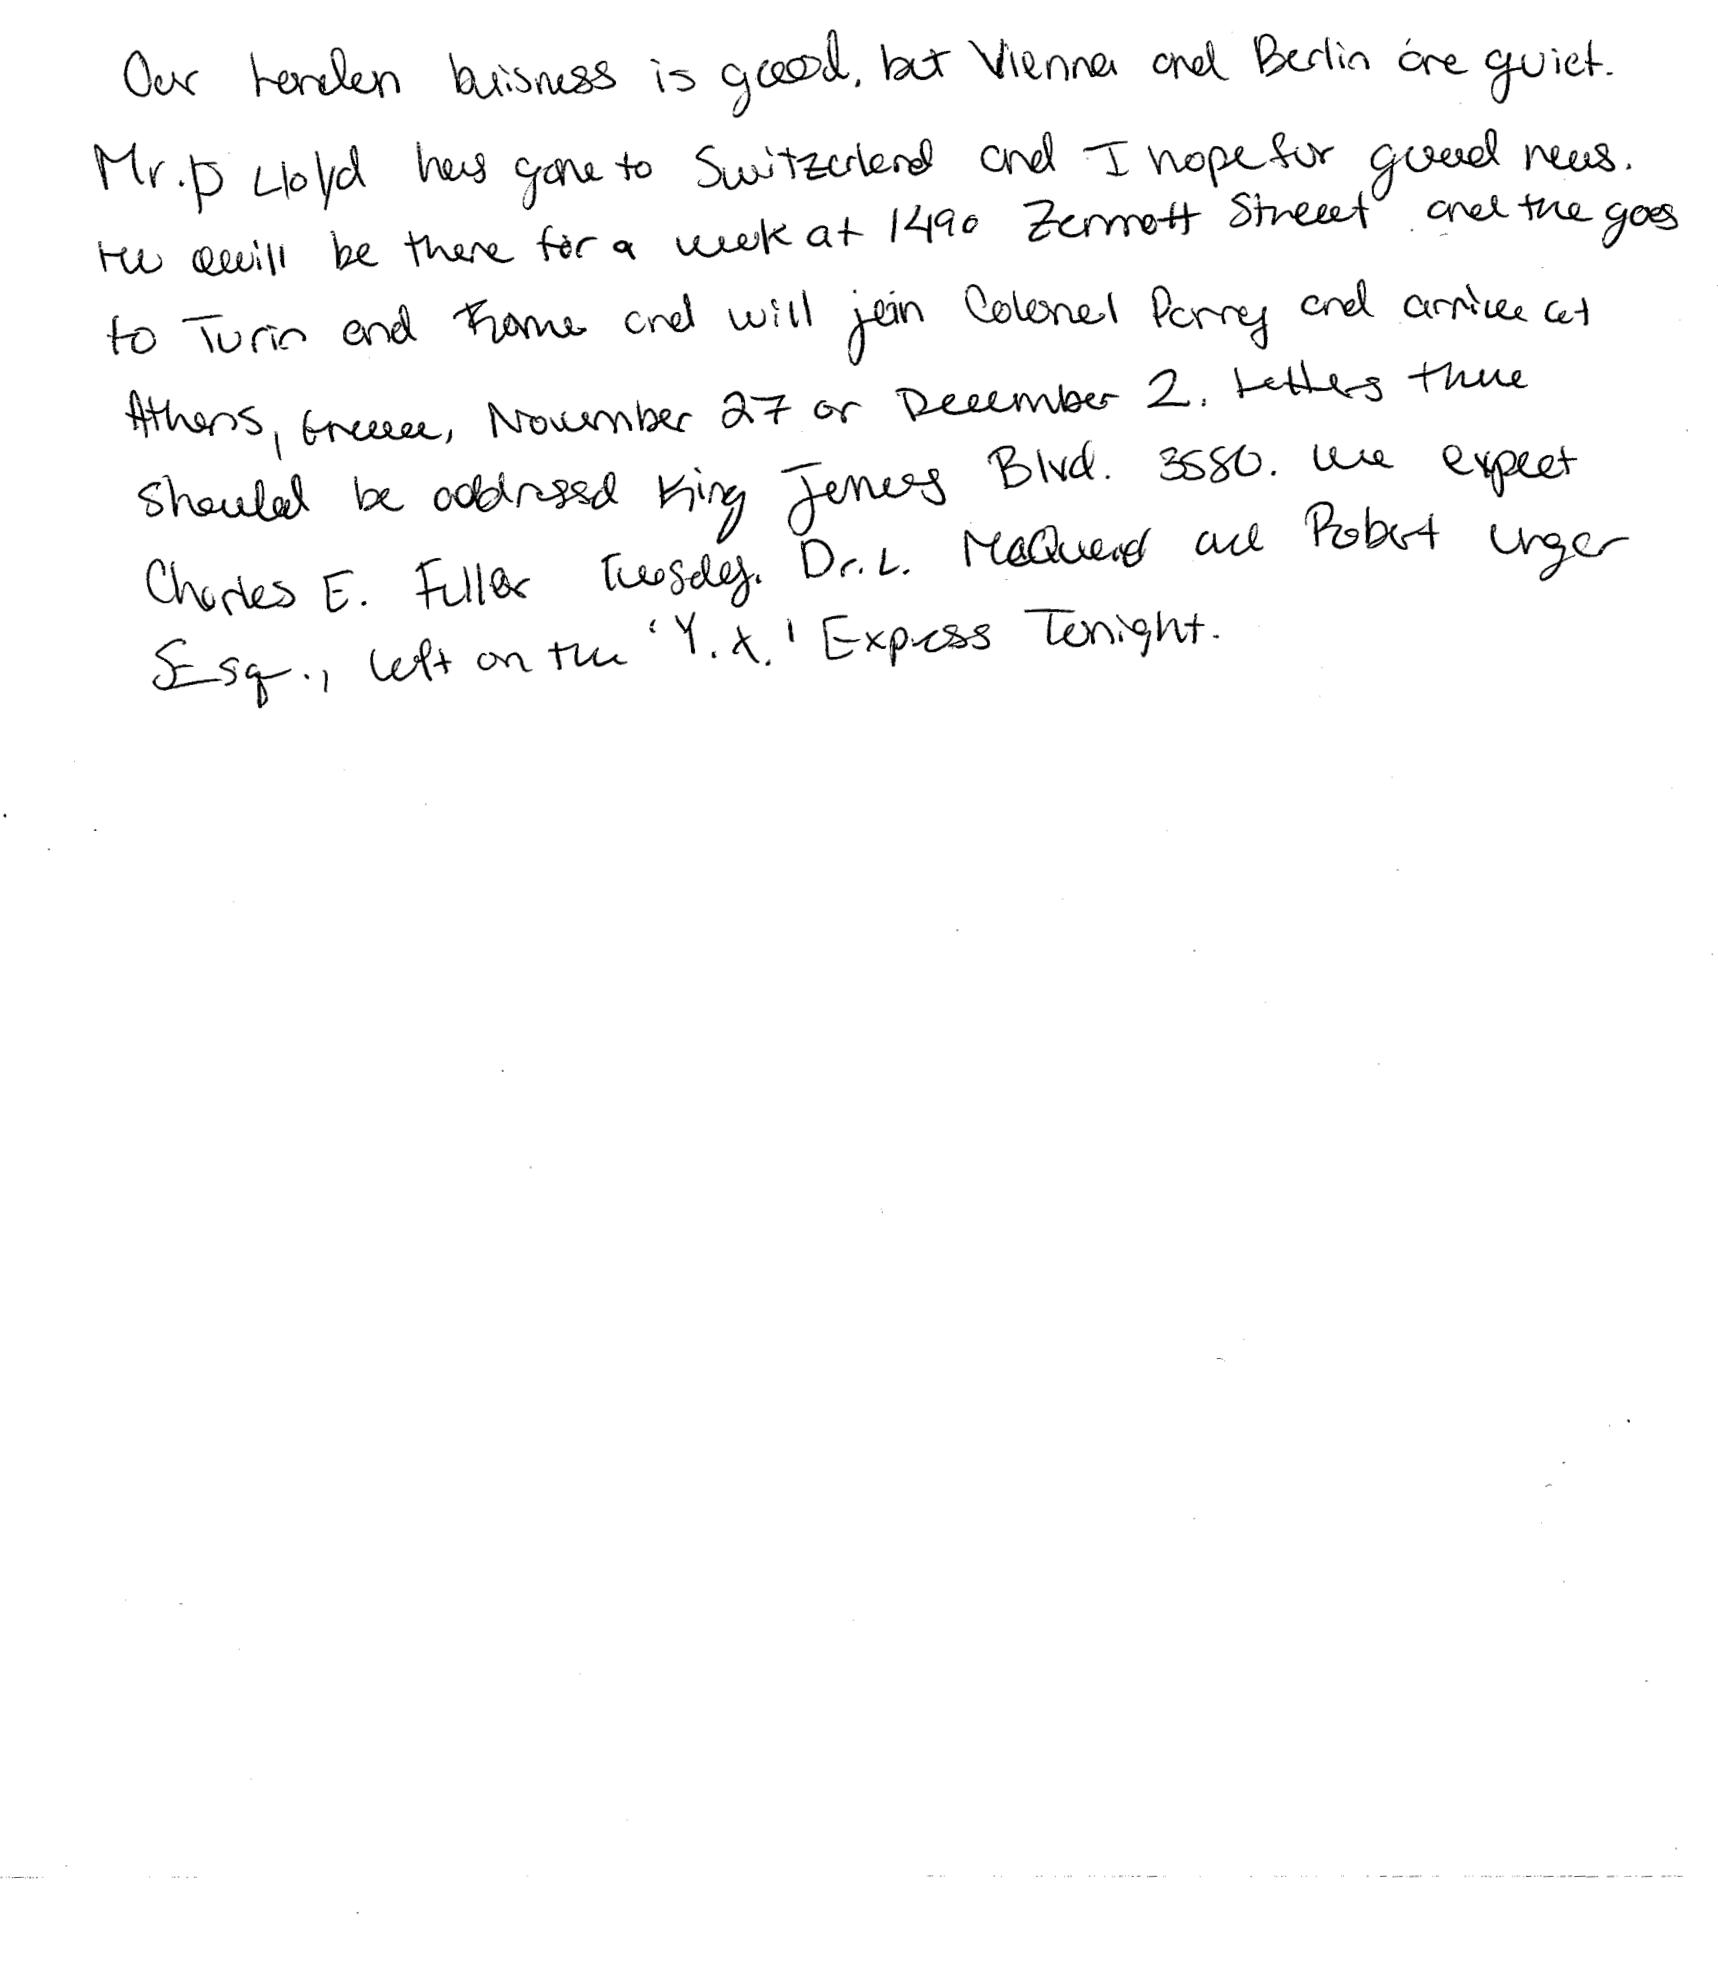 Our London buisness is good, but Vienna and Berlin are quiet.
Mr. D Lloyd has gone to Switzerland and I hope for good news.
He will be there for a week at 1490 Zermott Street and the goes
to Turin and Rome and will join Colonel Parry and arrive at
Athens, Greece, November 27 or December 2. Letters there
should be addressed King James Blvd. 3580. We expect
Charles E. Fuller Tuesday. Dr. L. McQuaid and Robert Unger
Esq., left on the 'Y.X.' Express Tonight.